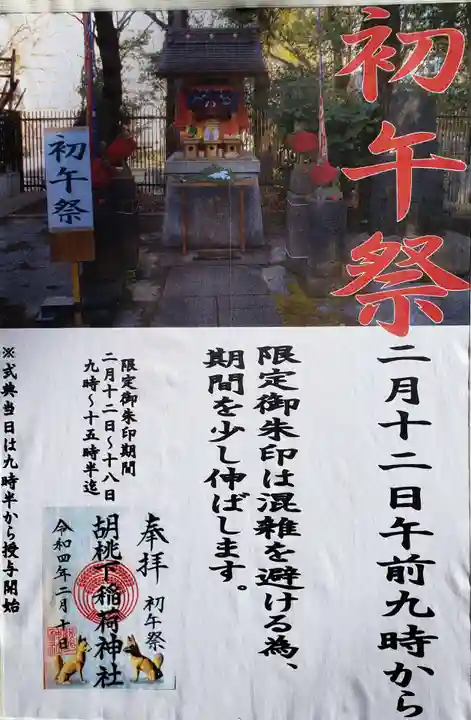 初午祭
二月十二日午前九時から
限定御朱印は混雑を避ける為、
期間を少し伸ばします。
初午祭
限定御朱印期間
二月十二日〜十八日
九時〜十五時半迄
奉拝
初午祭
胡桃下稲荷神社
令和四年二月十日
※式典当日は九時半から授与開始